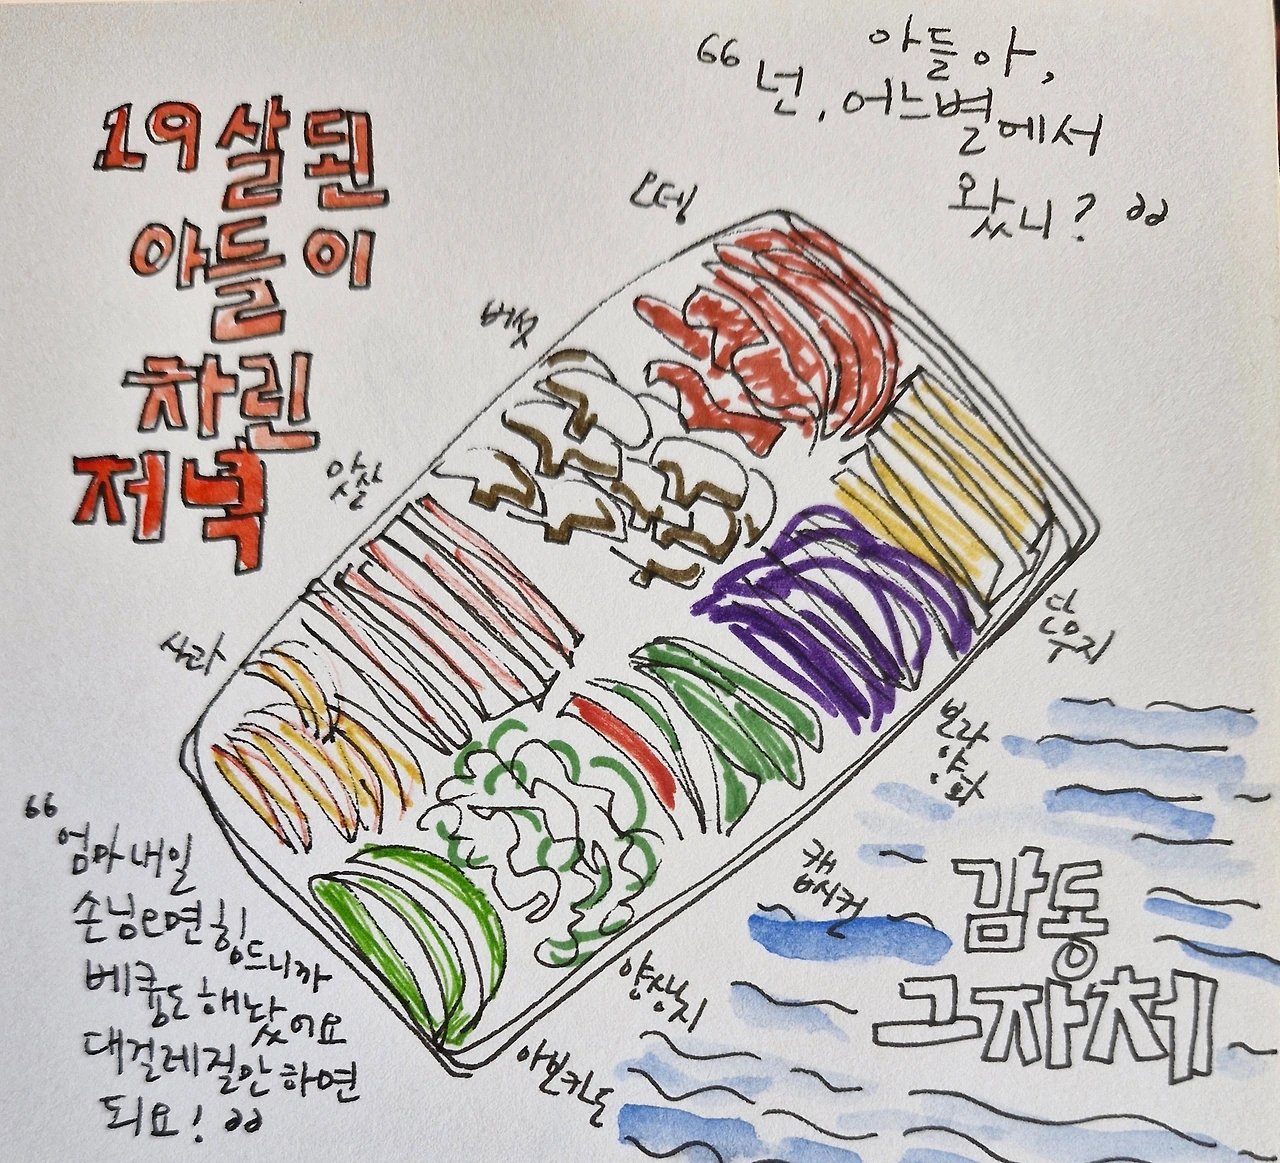 19살된
아들이
차린
저녁
아들아,
“넌, 어느별에서
왔니?”
버섯
맛살
단무지
보라
양파
캡시커
양상치
아보카도
“엄마 내일
손님오면 힘드니까
베큠도 해놨어요
대걸레질안하면
되요!”
감동
그자체